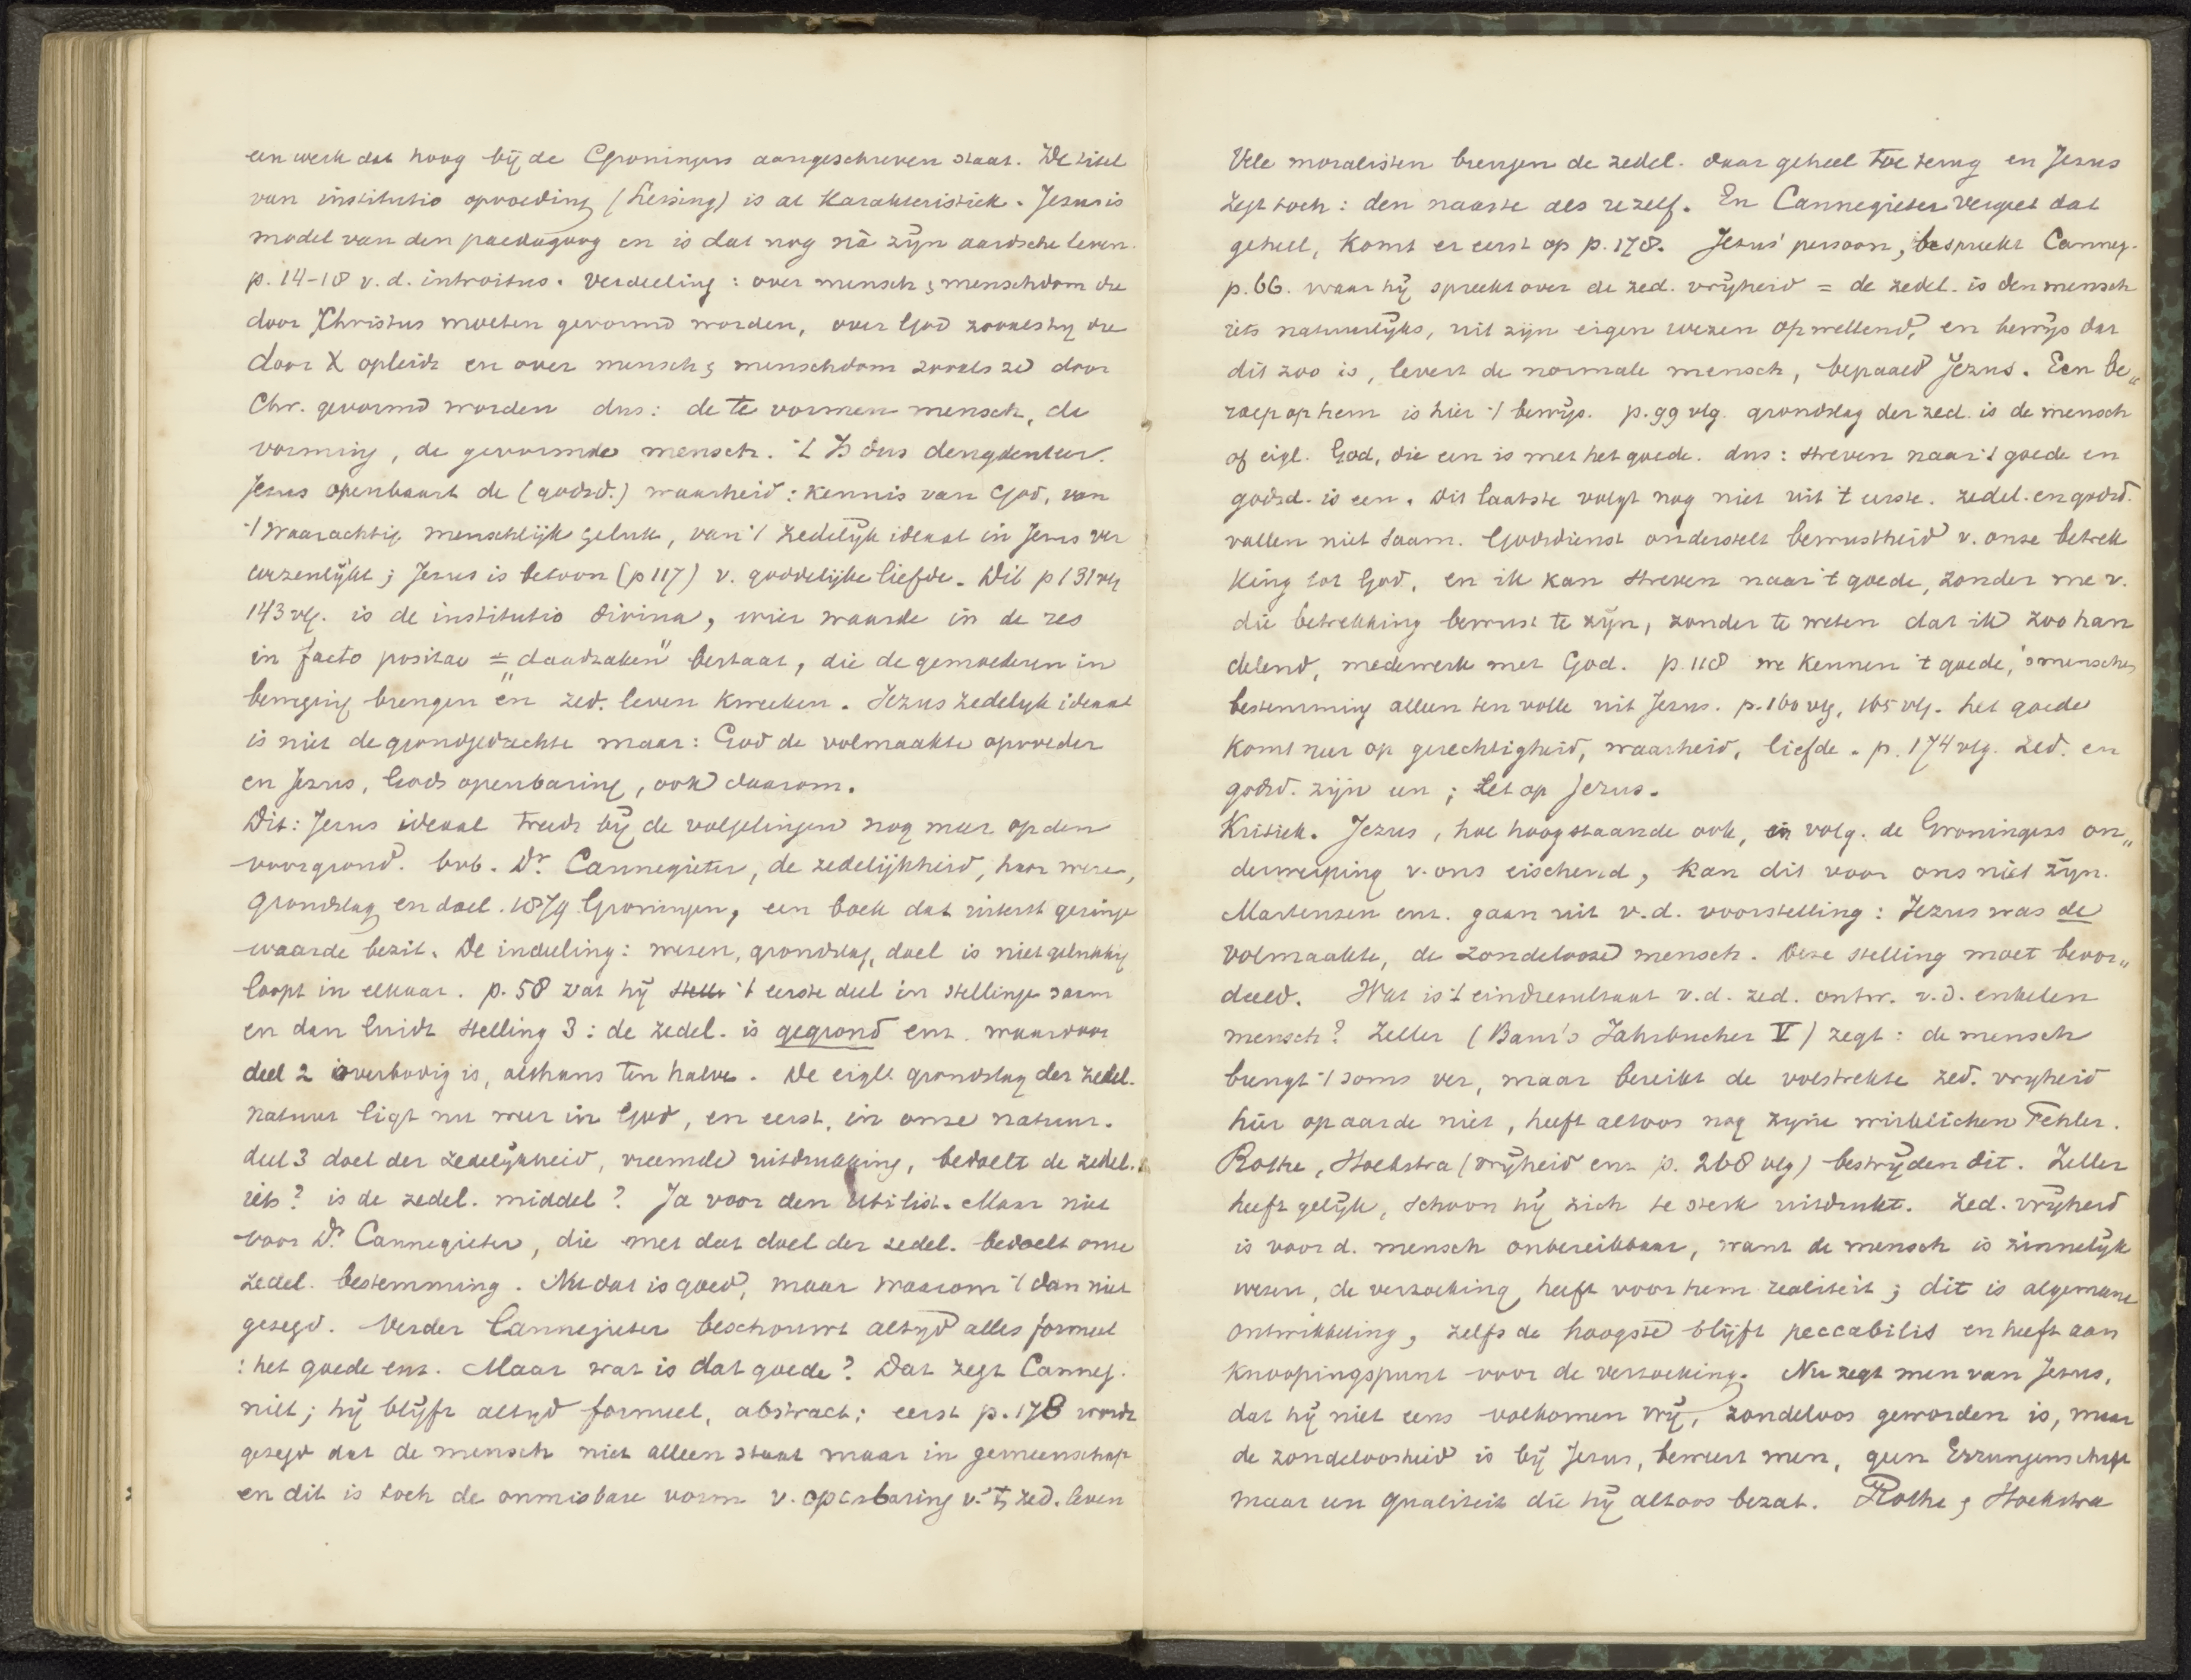 een werk dat hoog bij de Groningers aangeschreven staat. De titel
van institutio opvoeding (Lessing) is al karakteristiek. Jezus is
model van den paedagoog en is dat nog nà zijn aardsche leven.
p. 14-18 v. d. introitus. Verdeeling: over mensch & menschdom die
door Christus moeten gevormd worden, over God zooals hij die
door X opleidt en over mensch & menschdom zooals ze door
Chr. gevormd worden dus: de te vormen mensch, de
vorming, de gevormde mensch. 't Is dus
Jezus openbaart de (godsd.) waarheid: kennis van God, van
't waarachtig menschlijk geluk, van 't zedelijk ideaal in Jezus ver
wezenlijkt; Jezus is betoon (p 117) v. goddelijke liefde. Dit p 131 vlg
143 vlg. is de institutio divina, wier waarde in de res
in facto positae = "daadzaken" bestaat, die de gemoederen in
beweging brengen en zed. leven kweeken. Jezus zedelijk ideaal
is niet de grondgedachte maar: God de volmaakte opvoeder
en Jezus, Gods openbaring, ook daarom.
Dit: Jezus ideaal treedt bij de volgelingen nog meer op den
voorgrond. bvb. Dr. Cannegieter, de zedelijkheid, haar wezen,
grondslag en doel. 1879 Groningen, een boek dat uiterst geringe
waarde bezit. De indeeling: wezen, grondslag, doel is niet gelukkig
loopt in elkaar. p. 58 vat hij 't eerste deel in stellingen saam
en dan luidt stelling 3: de zedel. is gegrond enz. waardoor
deel 2 overbodig is, althans ten halve. De eigl. grondslag der zedel.
natuur ligt nu weer in God, en eerst, in onze natuur.
deel 3 doel der zedelijkheid, vreemde uitdrukking, bedoelt de zedel.
iets? is de zedel. middel? Ja voor den utilist. Maar niet
voor Dr. Cannegieter, die met dat doel der zedel. bedoelt onze
zedel. bestemming. Nu dat is goed, maar waarom 't dan niet
gezegd. Verder Cannegieter beschouwt altijd alles formeel
: het goede enz. Maar wat is dat goede? Dat zegt Canneg.
niet; hij blijft altijd formeel, abstract; eerst p. 178 wordt
gezegd dat de mensch niet alleen staat maar in gemeenschap
en dit is toch de onmisbare vorm v. openbaring v. 't zed. leven
Vele moralisten brengen de zedel. daar geheel toe terug en Jezus
zegt toch: den naaste als uzelf. En Cannegieter vergeet dat
geheel, komt er eerst op p. 178. Jezus' persoon, bespreekt Canneg.
p. 66. waar hij spreekt over de zed. vrijheid = de zedel. is den mensch
iets natuurlijks, uit zijn eigen wezen opwellend, en bewijs dat
dit zoo is, levert de normale mensch, bepaald Jezus. Een be„
roep op hem is hier 't bewijs. p. 99 vlg. grondslag der zed. is de mensch
of eigl. God, die een is met het goede. dus: streven naar 't goede en
godsd. is een. Dit laatste volgt nog niet uit 't eerste. zedel. en godsd.
vallen niet saam. Godsdienst onderstelt bewustheid v. onze betrek
king tot God, en ik kan streven naar 't goede, zonder me v.
die betrekking bewust te zijn, zonder te weten dat ik zoo han
delend, medewerk met God. p. 118 we kennen 't goede, 's menschen
bestemming alleen ten volle uit Jezus. p. 160 vlg, 165 vlg. het goede
komt neer op gerechtigheid, waarheid, liefde. p. 174 vlg. zed. en
godsd. zijn een; let op Jezus.
Kritiek. Jezus, hoe hoogstaande ook, en volg. de Groningers on„
derwerping v. ons eischend, kan dit voor ons niet zijn.
Martensen enz. gaan uit v. d. voorstelling: Jezus was de
volmaakte, de zondelooze mensch. Deze stelling moet beoor„
deeld. Wat is 't eindresultaat v. d. zed. ontw. v. d. enkelen
mensch? Zeller (Baur's Jahrbucher V) zegt: de mensch
brengt 't soms ver, maar bereikt de volstrekte zed. vrijheid
hier op aarde niet, heeft altoos nog zijne wirklichen Fehler.
Rothe, Hoekstra (vrijheid enz p. 268 vlg) bestrijden dit. Zeller
heeft gelijk, schoon hij zich te sterk uitdrukt. Zed. vrijheid
is voor d. mensch onbereikbaar, want de mensch is zinnelijk
wezen, de verzoeking heeft voor hem realiteit; dit is algemeene
ontwikkeling, zelfs de hoogste blijft peccabilis en heeft aan
knoopingspunt voor de verzoeking. Nu zegt men van Jezus,
dat hij niet eens volkomen vrij, zondeloos geworden is, maar
de zondeloosheid is bij Jezus, beweert men, geen Errungenschaft
maar een qualiteit die hij altoos bezat. Rothe & Hoekstra